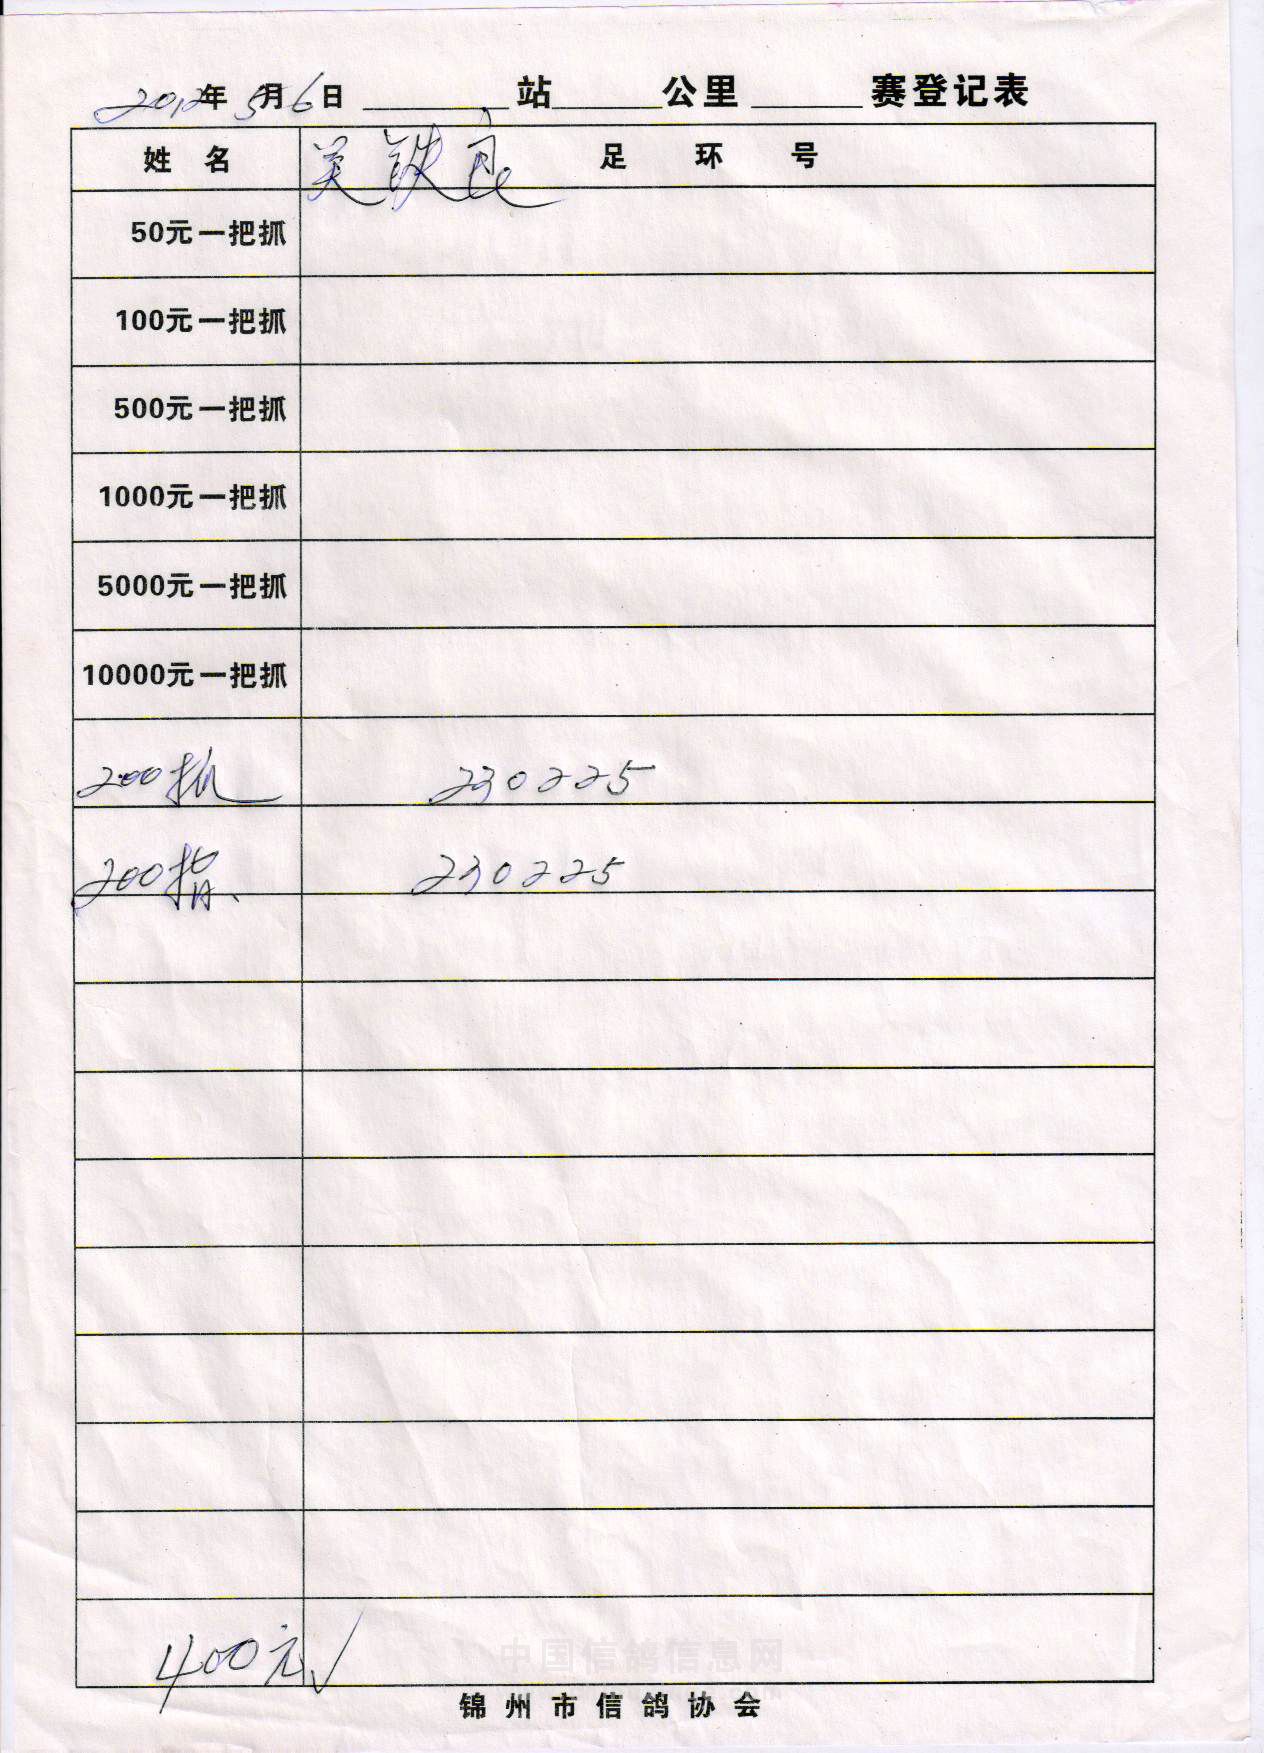 2012年5月6日 ______站______公里______赛登记表
姓 名 吴铁良 足 环 号
50元一把抓
100元一把抓
500元一把抓
1000元一把抓
5000元一把抓
10000元一把抓
200抓 230225
200指 230225
400元√
中国信鸽信息网
锦州市信鸽协会